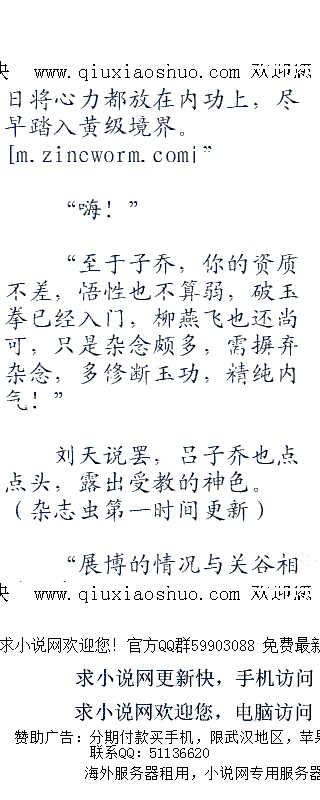 www.qiuxiaoshuo.com 欢迎您
日将心力都放在内功上，尽
早踏入黄级境界。
[m.zincworm.com]”
“嗨！”
“至于子乔，你的资质
不差，悟性也不算弱，破玉
拳已经入门，柳燕飞也还尚
可，只是杂念颇多，需摒弃
杂念，多修断玉功，精纯内
气！”
刘天说罢，吕子乔也点
点头，露出受教的神色。
（杂志虫第一时间更新）
“展博的情况与关谷相
www.qiuxiaoshuo.com 欢迎您
求小说网欢迎您！官方QQ群59903088 免费最新
求小说网更新快，手机访问
求小说网欢迎您，电脑访问
赞助广告：分期付款买手机，限武汉地区，苹果
联系QQ：51136620
海外服务器租用，小说网专用服务器